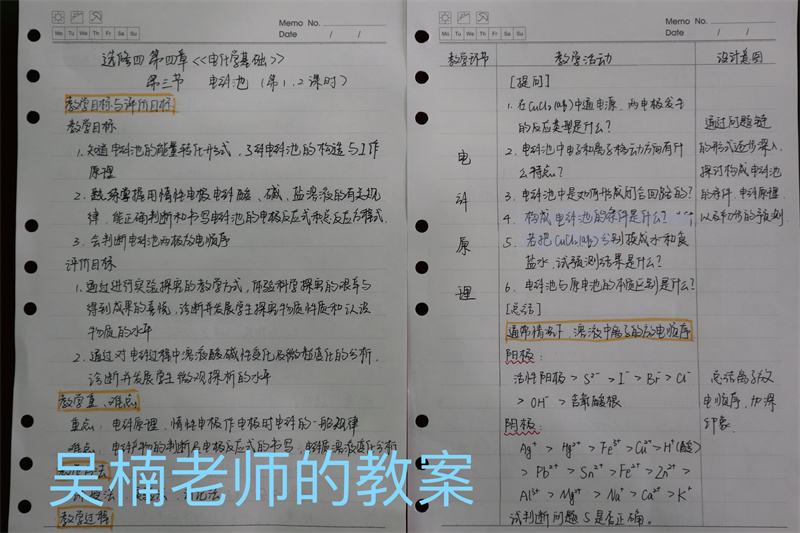 Memo No.
Mo Tu We Th Fr Sa Su
Date / /
选修四 第四章 <<电化学基础>>
第三节 电解池 (第1.2课时)
教学目标与评价目标
教学目标
1. 知道电解池的能量转化形式、了解电解池的构造与工作
原理
2. 熟练掌握用惰性电极电解酸、碱、盐溶液的有关规
律,能正确判断和书写电解池的电极反应式和总反应方程式.
3. 会判断电解池两极放电顺序
评价目标
1. 通过进行实验探究的教学方式,体验科学探究的艰辛与
得到成果的喜悦,诊断并发展学生探究物质性质和认识
物质的水平
2. 通过对电解过程中溶液酸碱性变化及微粒变化的分析,
诊断并发展学生微观探析的水平
教学重、难点
重点:电解原理、惰性电极作电极时电解的一般规律
难点:电解产物的判断及电极反应式的书写、
教学过程
吴楠老师的教案
Memo No.
Mo Tu We Th Fr Sa Su
Date / /
教学环节 教学活动 设计意图
电解原理
[提问]
1. 在CuCl₂(aq)中通电源,两电极发生
的反应类型是什么?
2. 电解池中电子和离子移动方向有什
么特点?
3. 电解池中是如何形成闭合回路的?
4. 构成电解池的条件是什么?
5. 若把CuCl₂(aq)分别换成水和食
盐水,试预测结果是什么?
6. 电解池与原电池的本质区别是什么?
[总结]
通常情况下,溶液中离子的放电顺序
阳极:
活性阳极 > S²⁻ > I⁻ > Br⁻ > Cl⁻
> OH⁻ > 含氧酸根
阴极:
Ag⁺ > Hg²⁺ > Fe³⁺ > Cu²⁺ > H⁺(酸)
> Pb²⁺ > Sn²⁺ > Fe²⁺ > Zn²⁺ >
Al³⁺ > Mg²⁺ > Na⁺ > Ca²⁺ > K⁺
试判断问题5是否正确。
通过问题链
的形式逐步深入,
探讨构成电解池
的条件、电解原理
以及产物的预测
总结离子放
电顺序,加深
印象.